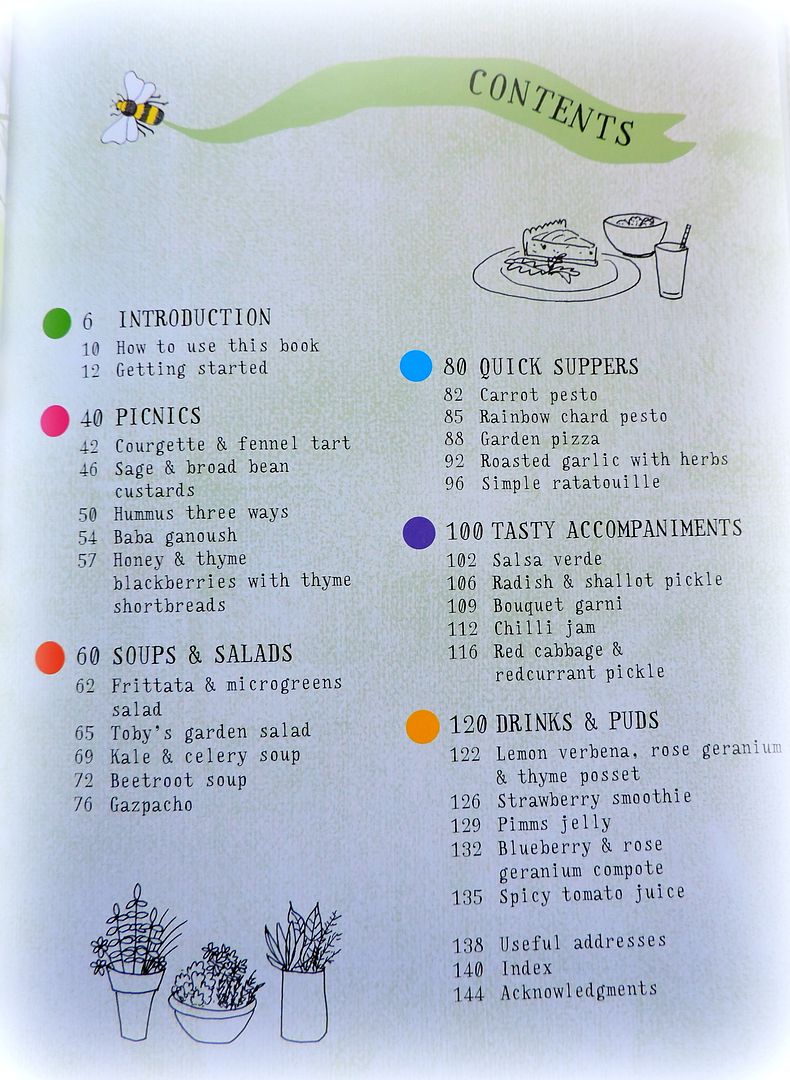 CONTENTS
6 INTRODUCTION
10 How to use this book
12 Getting started
40 PICNICS
42 Courgette & fennel tart
46 Sage & broad bean
custards
50 Hummus three ways
54 Baba ganoush
57 Honey & thyme
blackberries with thyme
shortbreads
60 SOUPS & SALADS
62 Frittata & microgreens
salad
65 Toby's garden salad
69 Kale & celery soup
72 Beetroot soup
76 Gazpacho
80 QUICK SUPPERS
82 Carrot pesto
85 Rainbow chard pesto
88 Garden pizza
92 Roasted garlic with herbs
96 Simple ratatouille
100 TASTY ACCOMPANIMENTS
102 Salsa verde
106 Radish & shallot pickle
109 Bouquet garni
112 Chilli jam
116 Red cabbage &
redcurrant pickle
120 DRINKS & PUDS
122 Lemon verbena, rose geranium
& thyme posset
126 Strawberry smoothie
129 Pimms jelly
132 Blueberry & rose
geranium compote
135 Spicy tomato juice
138 Useful addresses
140 Index
144 Acknowledgments